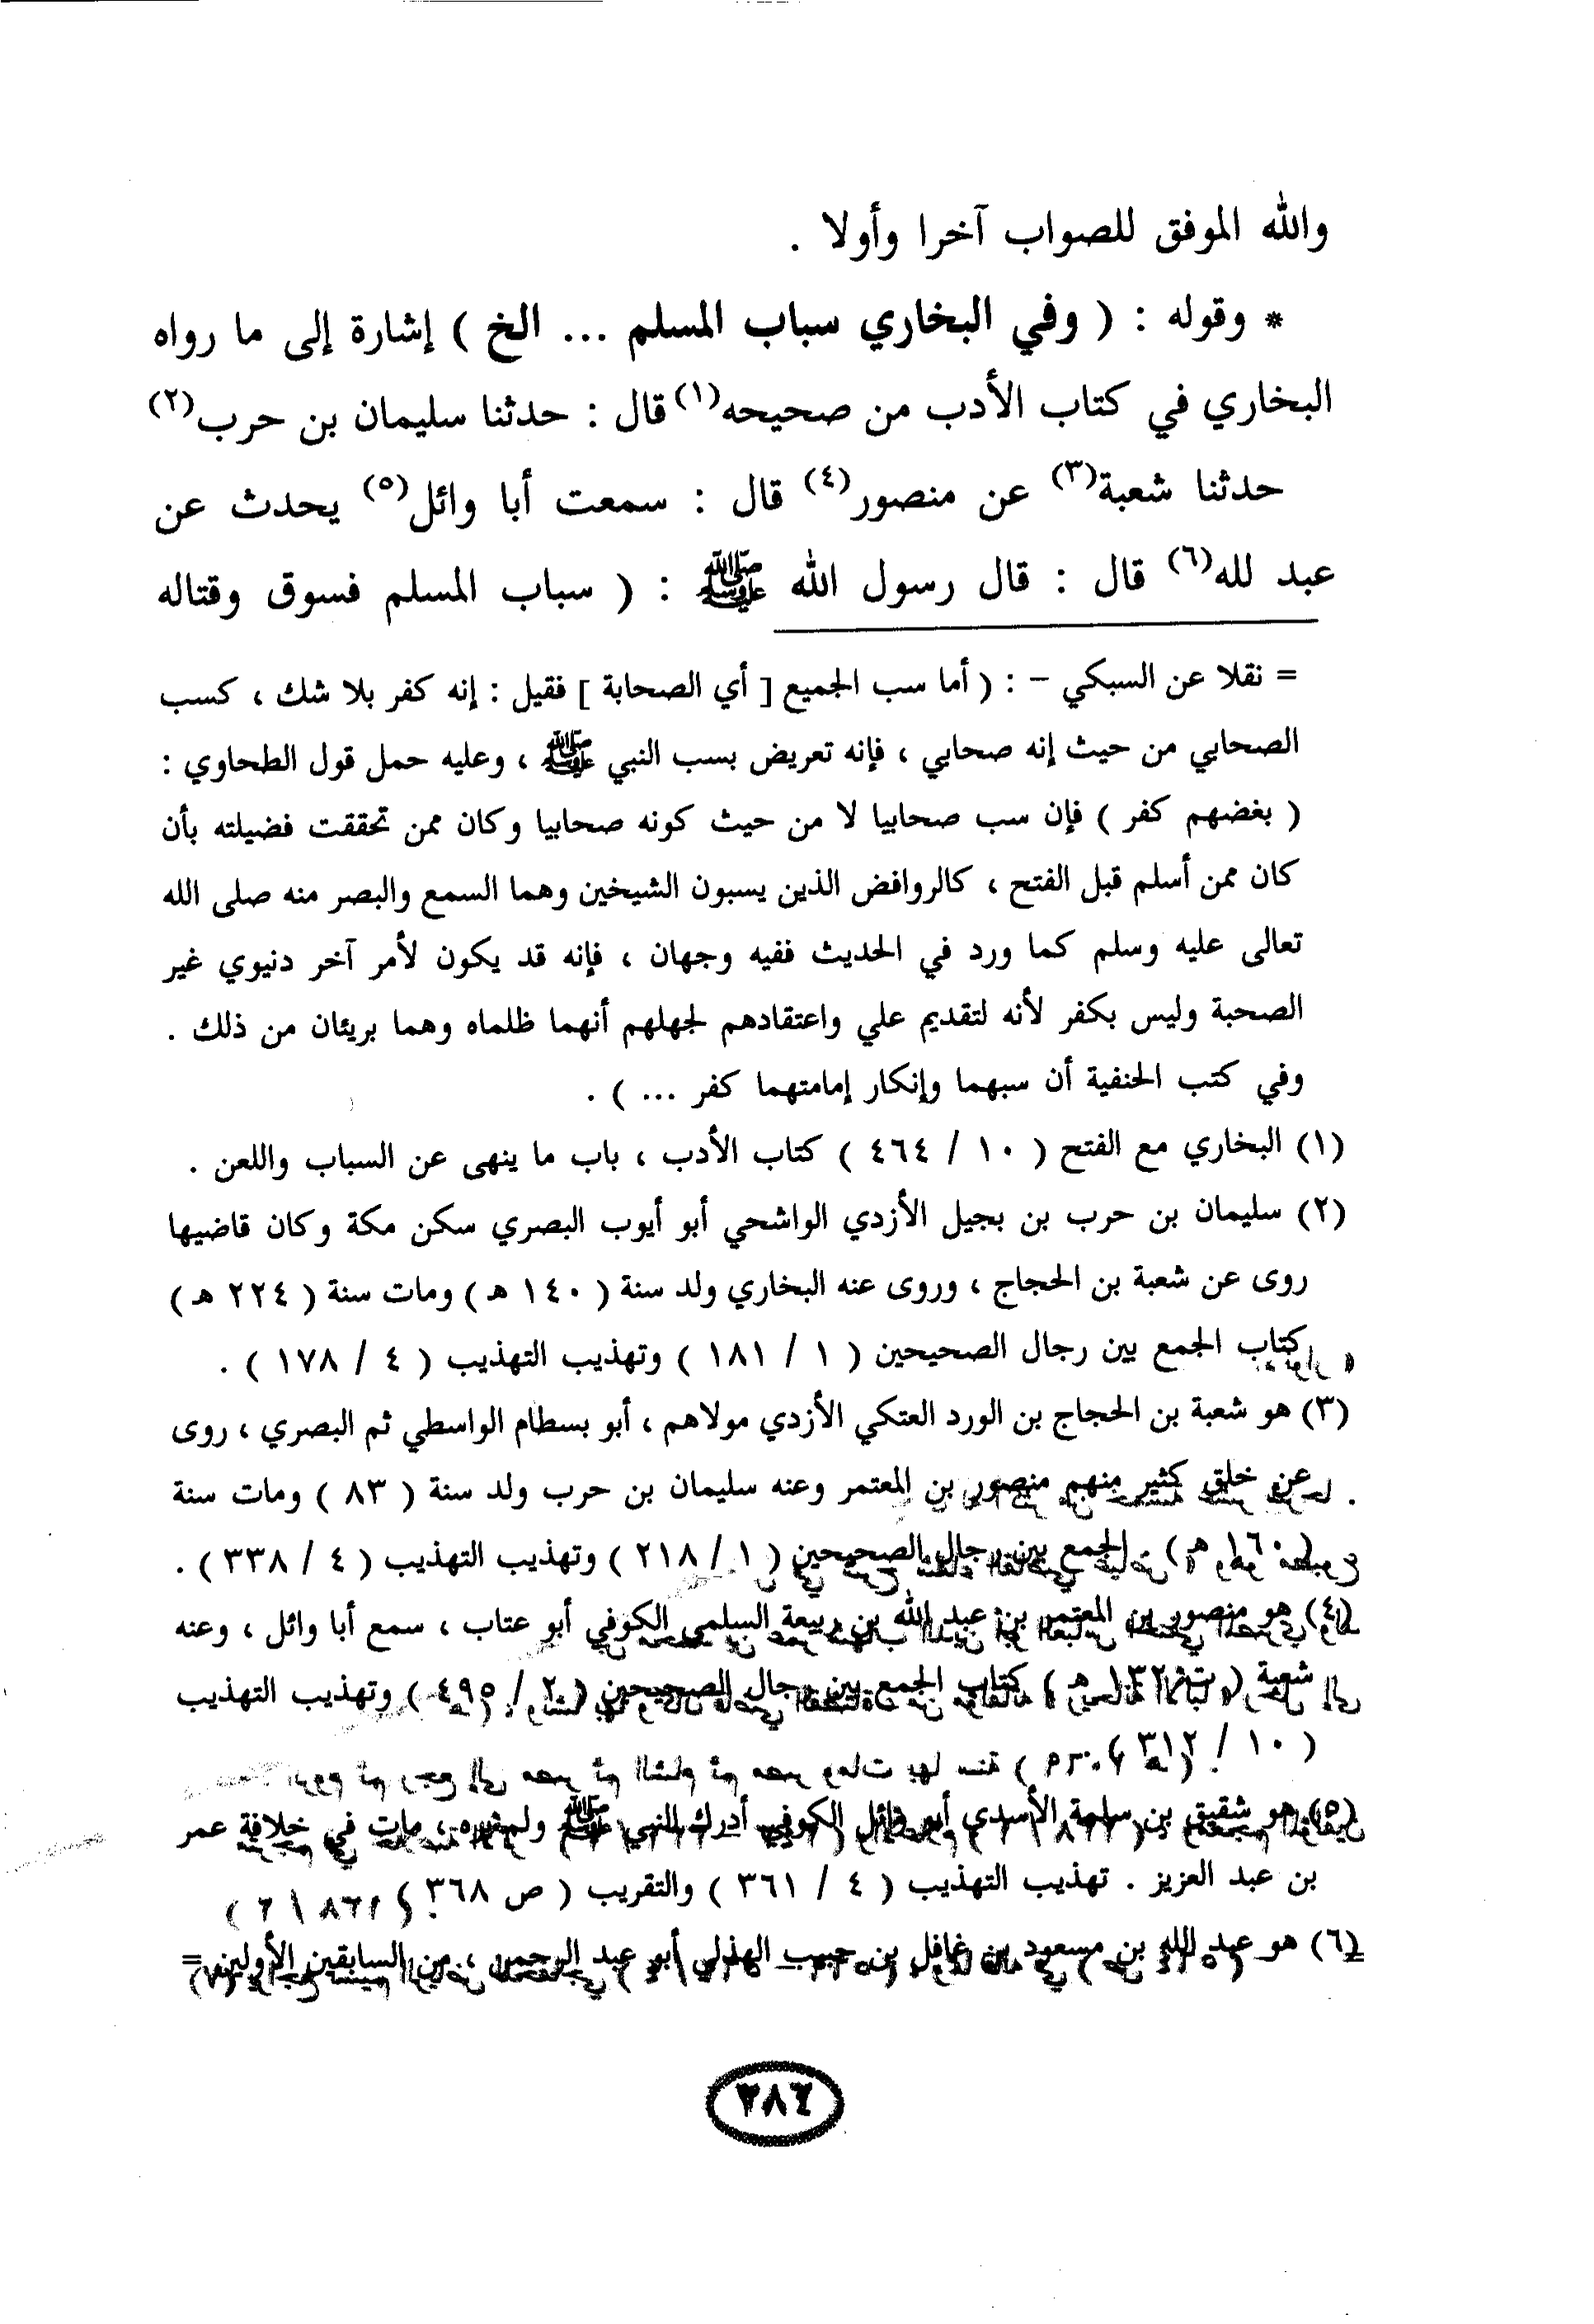 والله الموفق للصواب آخرا وأولا .
* وقوله : ( وفي البخاري سباب المسلم ... الخ ) إشارة إلى ما رواه
البخاري في كتاب الأدب من صحيحه(١) قال : حدثنا سليمان بن حرب(٢)
حدثنا شعبة(٣) عن منصور(٤) قال : سمعت أبا وائل(٥) يحدث عن
عبد لله(٦) قال : قال رسول الله ﷺ : ( سباب المسلم فسوق وقتاله
= نقلا عن السبكي - : ( أما سب الجميع [ أي الصحابة ] فقيل : إنه كفر بلا شك ، كسب
الصحابي من حيث إنه صحابي ، فإنه تعريض بسب النبي ﷺ ، وعليه حمل قول الطحاوي :
( بغضهم كفر ) فإن سب صحابيا لا من حيث كونه صحابيا وكان ممن تحققت فضيلته بأن
كان ممن أسلم قبل الفتح ، كالروافض الذين يسبون الشيخين وهما السمع والبصر منه صلى الله
تعالى عليه وسلم كما ورد في الحديث ففيه وجهان ، فإنه قد يكون لأمر آخر دنيوي غير
الصحبة وليس بكفر لأنه لتقديم علي واعتقادهم لجهلهم أنهما ظلماه وهما بريئان من ذلك .
وفي كتب الحنفية أن سبهما وإنكار إمامتهما كفر ... ) .
(١) البخاري مع الفتح ( ١٠ / ٤٦٤ ) كتاب الأدب ، باب ما ينهى عن السباب واللعن .
(٢) سليمان بن حرب بن بجيل الأزدي الواشحي أبو أيوب البصري سكن مكة وكان قاضيها
روى عن شعبة بن الحجاج ، وروى عنه البخاري ولد سنة ( ١٤٠ هـ ) ومات سنة ( ٢٢٤ هـ )
كتاب الجمع بين رجال الصحيحين ( ١ / ١٨١ ) وتهذيب التهذيب ( ٤ / ١٧٨ ) .
(٣) هو شعبة بن الحجاج بن الورد العتكي الأزدي مولاهم ، أبو بسطام الواسطي ثم البصري ، روى
عن خلق كثير منهم منصور بن المعتمر وعنه سليمان بن حرب ولد سنة ( ٨٣ ) ومات سنة
( ١٦٠ هـ ) الجمع بين رجال الصحيحين ( ١ / ٢١٨ ) وتهذيب التهذيب ( ٤ / ٣٣٨ ) .
(٤) هو منصور بن المعتمر بن عبد الله بن ربيعة السلمي الكوفي أبو عتاب ، سمع أبا وائل ، وعنه
شعبة ( ت ١٣٢ هـ ) كتاب الجمع بين رجال الصحيحين ( ٢ / ٤٩٥ ) وتهذيب التهذيب
( ١٠ / ٣١٢ ) .
(٥) هو شقيق بن سلمة الأسدي أبو وائل الكوفي أدرك النبي ﷺ ولم يره ، مات في خلافة عمر
بن عبد العزيز . تهذيب التهذيب ( ٤ / ٣٦١ ) والتقريب ( ص ٣٦٨ ) .
(٦) هو عبد الله بن مسعود بن غافل بن حبيب الهذلي أبو عبد الرحمن ، من السابقين الأولين =
٣٨٤